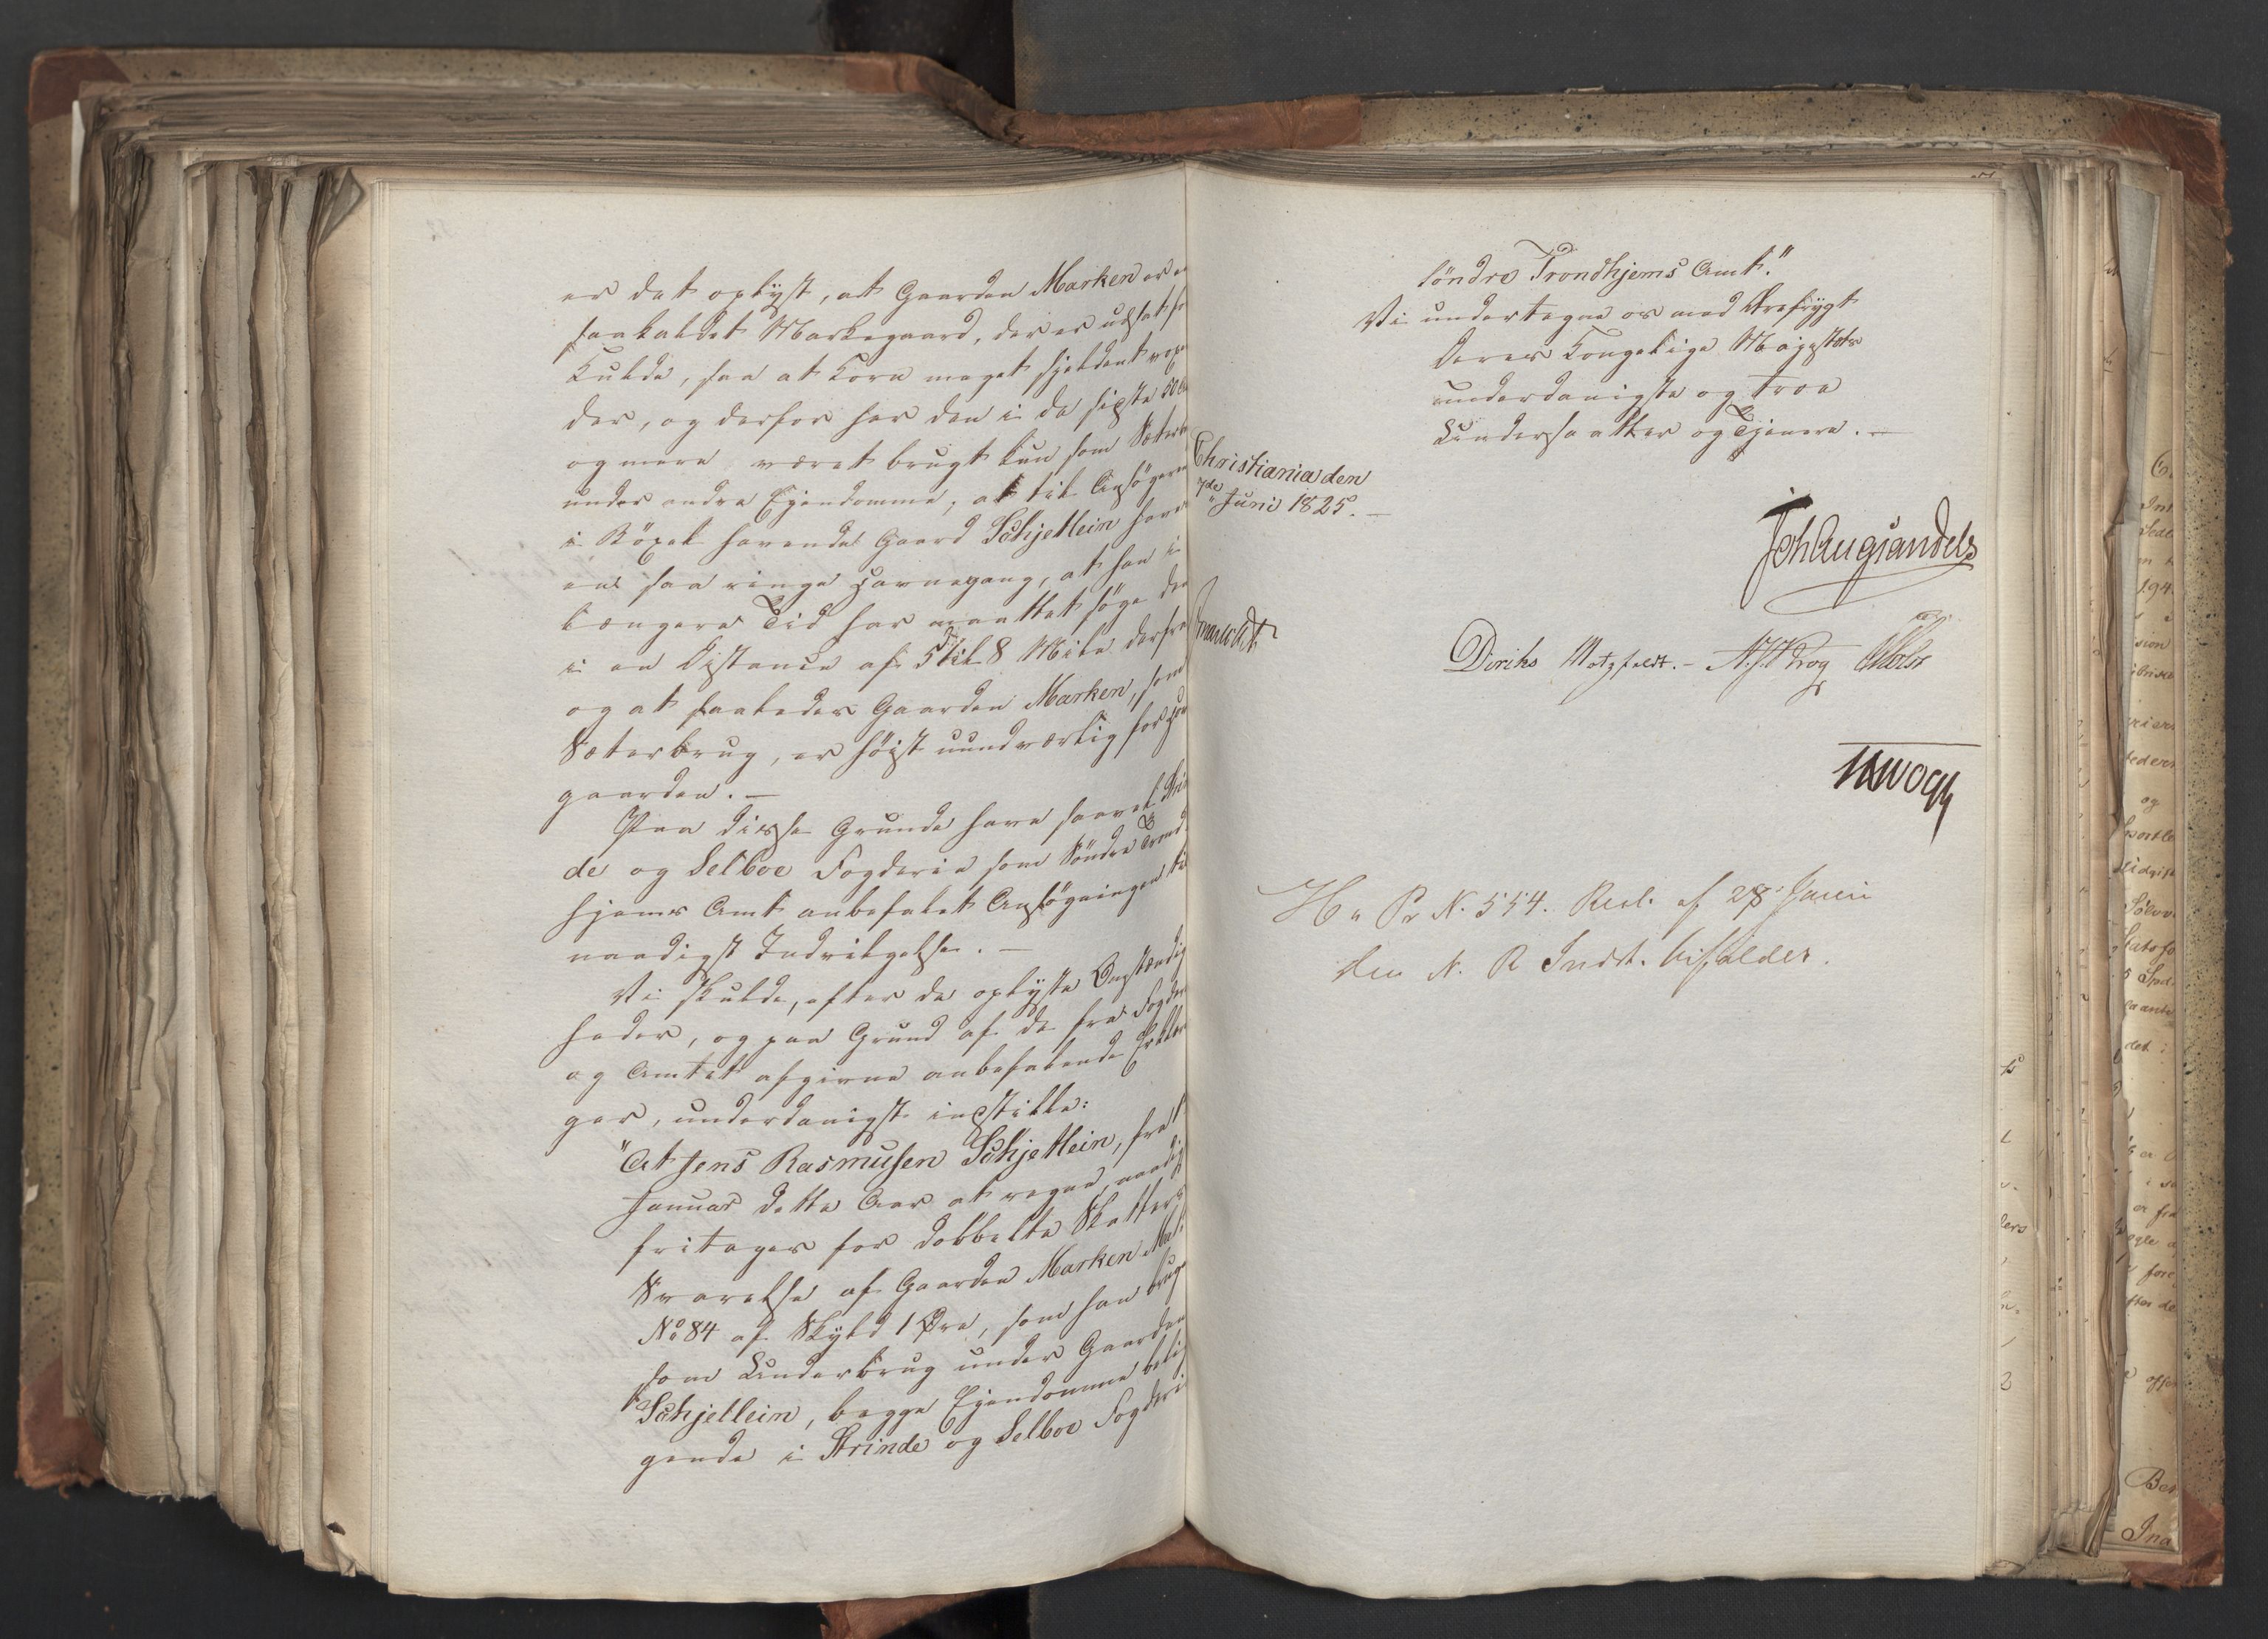 er det oplyst, at Gaarden Marken er e
saakaldet Markegaard, der er udsat fo
Kulde, saa at Korn meget sjeldent voxe
der, og derfor har den i de sidste 50 Aa
og mere været brugt kun som Sæterb
under andre Eiendomme; at til Ansøgeren
i Böxel havende Gaard Schjetlein haves
en saa ringe Havnegang, at han i
længere Tid har maattet søge den
i en Distance af 5 til 8 Mile derfra
og at saaledes Gaarden Marken, som
Sæterbrug, er høist uundværlig for H
gaarden. —
Paa disse Grunde have saavel Strin
de og Selboe Fogderie som Söndre Trond
hjems Amt anbefalet Ansøgningen til
naadigst Indvilgelse. —
Vi skulde, efter de oplyste Omstændig
heder, og paa Grund af de fra Fogder
og Amtet afgivne anbefalende Erklær
ger, underdanigst indstille:
"At Jens Rasmusen Schjetlein, fra 1
Januar dette Aar at regne, naadig
fritages for dobbelte Skatters
Svarelse af Gaarden Marken Mat
No 84 af Skyld 1 Øre, som han bruge
som Underbrug under Gaarden
Schjetlein, begge Eiendomme belig
gende i Strinde og Selboe Fogderi
söndre Trondhjems Amt."
Vi undertegne os med Ærefrygt
Deres Kongelige Majestæts
underdanigste og troe
Undersaatter og Tjenere. —
Christiania den
7de Juni 1825. —
JohAugSandels
Diriks Motzfeldt. — NJKrog
H: Pr N. 554. Resl. af 28 Juni
den N. R Indst. bifalder.